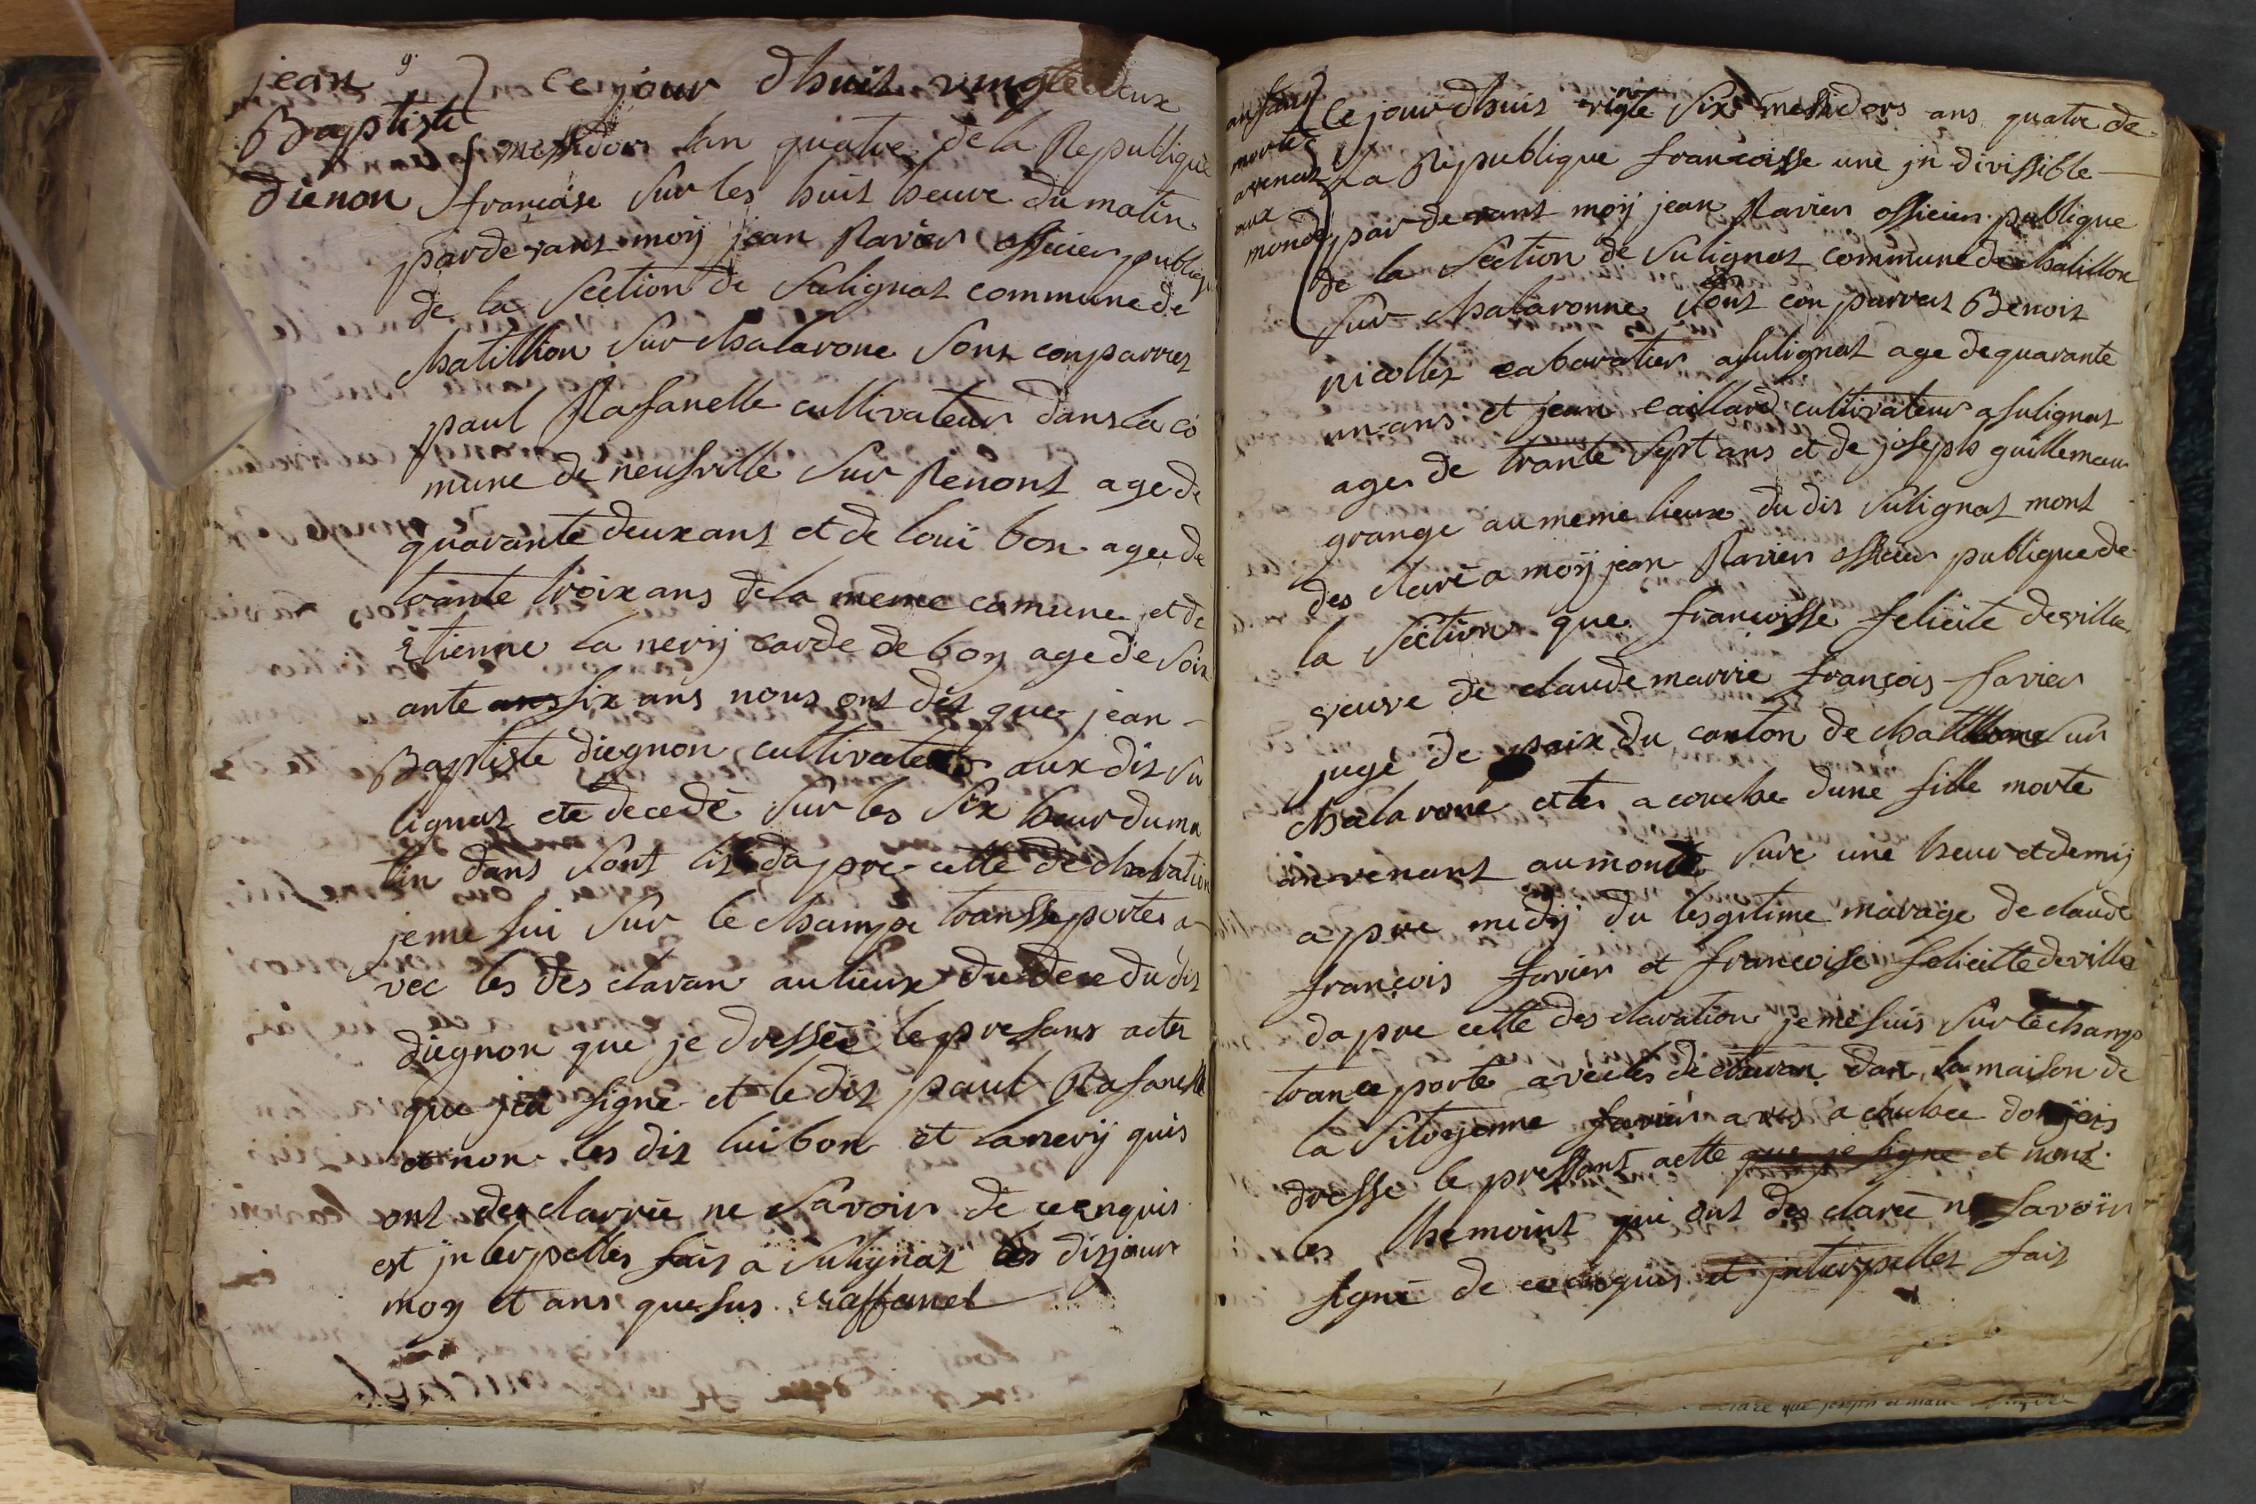 jean
Baptiste
dienon
ce jour dhuit vingte deux
messidor lan quatre de la Republique
francaise sur les huit heure du matin
parde vant moÿ jean Ravier officier publiq
de la section de Sulignat commune de
chatillion sur chalarone sont conparres
paul Rafanelle cultivateur dans la co
mune de neufville sur Renont age de
quarante deux ans et de loui bon agee de
trante troix ans de la meme comune et de
Etienne la nerÿ carde de boy age de soix
ante ans six ans nous ont dit que jean
Baptiste diegnon cultivateur aux dit su
lignat ete decedé sur les six heur du ma
tin dans sont lit dapre cette declaration
je me sui sur le champe transseportes a
vec les des claran au lieux du dece du dit
diegnon que je dressée le presans actes
que jea signe et le dit paul Rafanelle
et non les dit lui bon et lanerÿ quis
ont des clarrée ne savoir de ce enquis
est jnterpelles fait a sulignat les dis jour
moy et ans que sus Raffanel
anfans
mortes
avenant
aux
monde
ce jour dhuit vingte six messidors ans quatre de
La Republique francoisse une jn divissible
par de vant moÿ jean Ravier officier publique
de la section de sulignat commune de chatillon
sur chalaronne sont con parrut Benoit
nicolles cabaratier a sulignat age de quarante
un ans et jean caillard cultivateur a sulignat
ages de trante sept ans et de joseph guillemau
grange au meme lieux du dit sulignat mont
des claré a moÿ jean Ravier officier publique de
la section que francoisse felicite deville
veuve de claude marrie françois favier
juge de paix du canton de chatillone sur
chalarone ettes a couchee dune fille morte
anvenant au monde sure une heur et demÿ
apre medÿ du lesgitime marage de claude
françois favier et francoise felicitte deville
dapre cette des claration je me suis sur le champ
trance porté avec les declaran dan la maison de
la sitoyenne favier a couchee don jeis
dresse le pressant actte que je signe et nont
les themoint qui ont des claree ne savoir
signé de ce enquis et jnterpelles fait